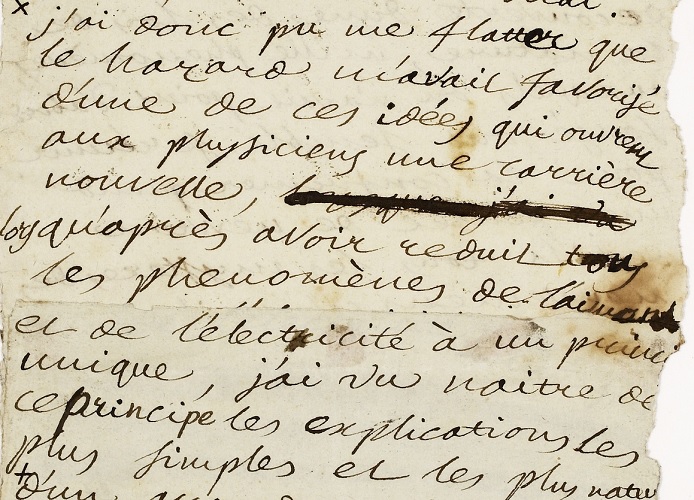 x
j'ai donc pu me flatter que
le hazard m'avait favorisé
d'une de ces idées qui ouvrent
aux physiciens une carrière
nouvelle,
lorsqu'après avoir reduit tous
les phenomènes de l'aimant
et de l'électricité à un princi
unique, j'ai vu naitre de
ce principe les explications les
plus simples et les plus natu
+
d'un